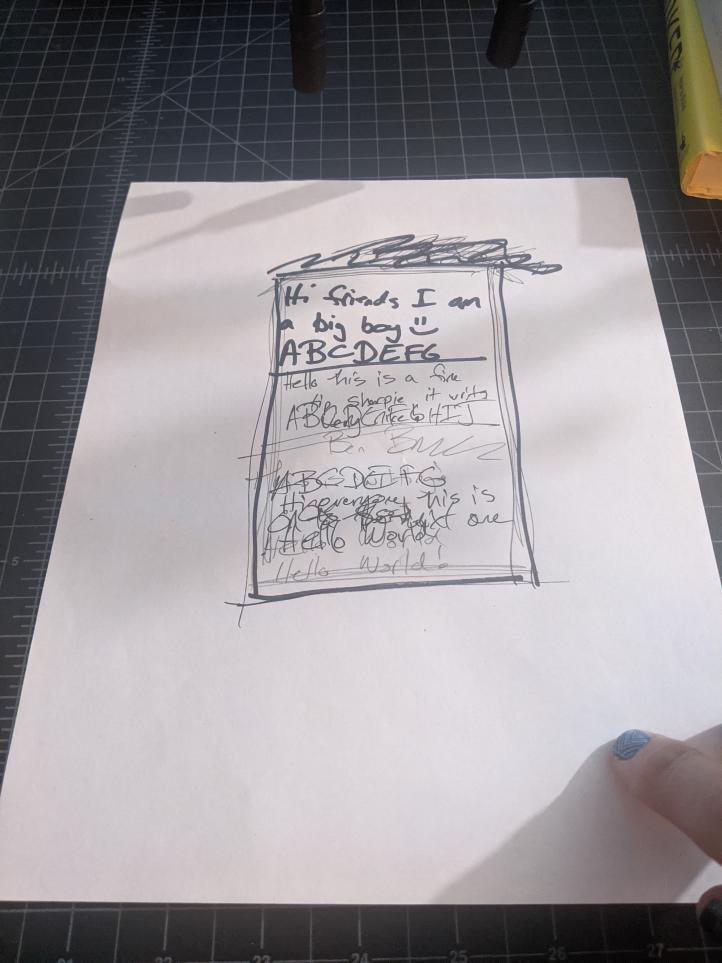 Hi friends I am
a big boy
ABCDEFG
Hello this is a fine
tip sharpie it writes
ABCDEFGHIJ
ABCDEFG
Hi everyone this is
next one
Hello World!
Hello World!
21 22 23 24 25 26 27
5